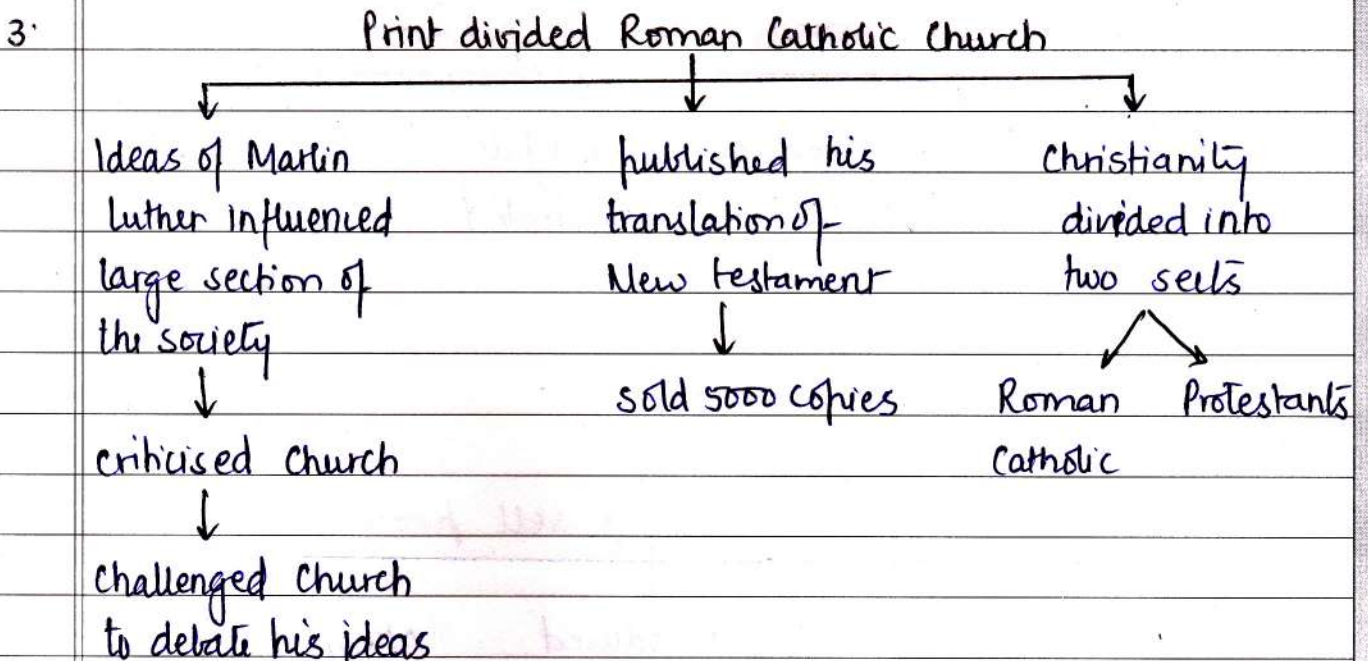 3.
Print divided Roman Catholic Church
Ideas of Martin
luther influenced
large section of
the society
criticised Church
Challenged Church
to debate his ideas
published his
translation of
New testament
sold 5000 copies
Christianity
divided into
two sects
Roman
Catholic
Protestants